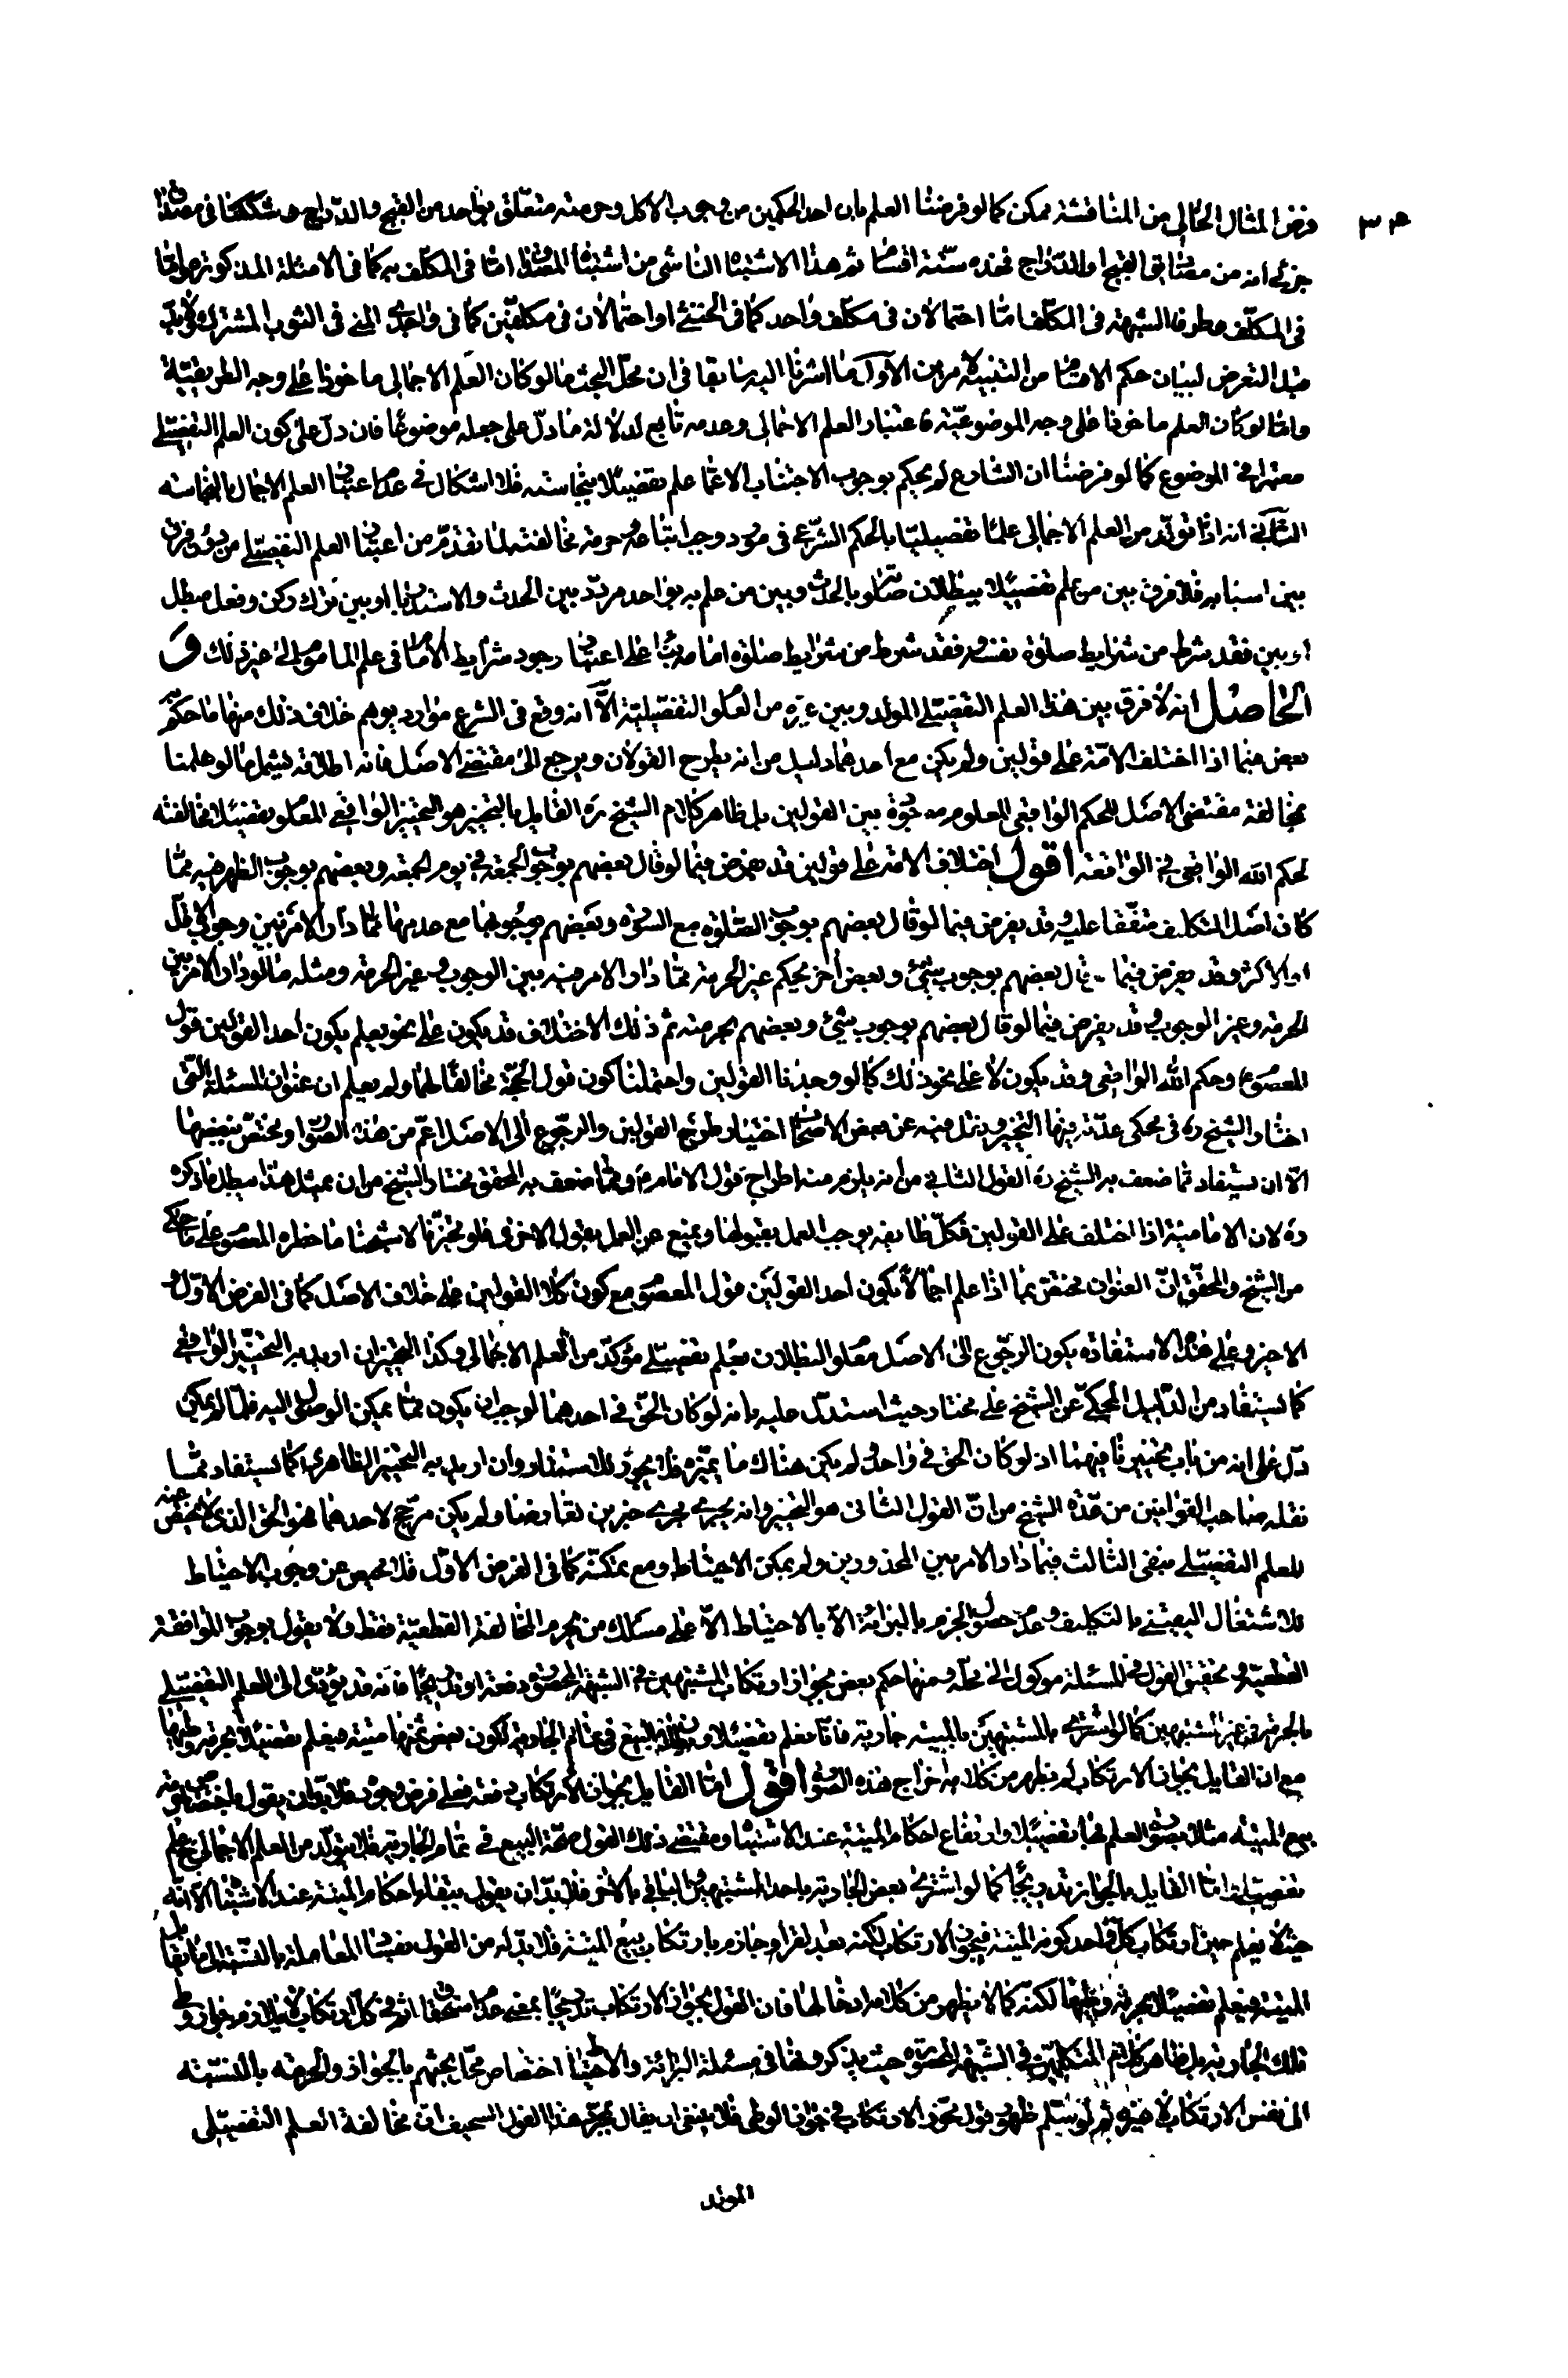 فرض المثال الخالى من المناقشة ممكن كما لو فرضنا العلم بان احد الحكمين من وجوب الاكل وحرمته متعلق بواحد من القبج والدراج وشككنا فى مصداق
جزئى انه من مصاديق القبج او الدراج فهذه ستة اقسام ثم هذا الاشتباه الناشى من اشتباه المصداق اما فى المكلف به كما فى الامثلة المذكورة واما
فى المكلف وطرفا الشبهة فى المكلف اما احتمالان فى مكلف واحد كما فى الخنثى او احتمالان فى مكلفين كما فى واجدى المنى فى الثوب المشترك ولا بد
قبل التعرض لبيان حكم الاقسام من التنبيه لامرين الاول ما اشرنا اليه سابقا فى ان محل البحث ما لو كان العلم الاجمالى ماخوذا على وجه الطريقية
واما لو كان العلم ماخوذا على وجه الموضوعية فاعتبار العلم الاجمالى وعدمه تابع لدلالة ما دل على جعله موضوعا فان دل على كون العلم التفصيلى
معتبرا فى الموضوع كما لو فرضنا ان الشارع لم يحكم بوجوب الاجتناب الا عما علم تفصيلا بنجاسته فلا اشكال فى عدم اعتبار العلم الاجمالى بالنجاسة
الثانى انه اذا تولد من العلم الاجمالى علما تفصيليا بالحكم الشرعى فى مورد وجب اتباعه وحرمة مخالفته لما تقدم من اعتبار العلم التفصيلى من دون فرق
بين اسبابه فلا فرق بين من علم تفصيلا ببطلان صلوته بالحدث وبين من علم به بواحد مردد بين الحدث والاستدبار او بين ترك ركن وفعل مبطل
او بين فقد شرط من شرايط صلوة نفسه وفقد شرط من شرايط صلوة امامه بناء على اعتبار وجود شرايط الامام فى علم الماموم الى غير ذلك و
الحاصل انه لا فرق بين هذا العلم التفصيلى المولد وبين غيره من العلوم التفصيلية الا انه وقع فى الشرع موارد يوهم خلاف ذلك منها ما حكم به
بعض فيما اذا اختلف الامة على قولين ولم يكن مع احدهما دليل من انه يطرح القولان ويرجع الى مقتضى الاصل فانه اطلاقه يشمل ما لو علمنا
بمخالفة مقتضى الاصل للحكم الواقعى المعلوم وجوده بين القولين بل ظاهر كلام الشيخ ره القايل بالتخيير هو التخيير الواقعى المعلوم تفصيلا مخالفته
لحكم الله الواقعى فى الواقعة اقول اختلاف الامة على قولين قد يفرض فيما لو قال بعضهم بوجوب الجمعة فى يوم الجمعة وبعضهم بوجوب الظهر فيه مما
كان اصل التكليف متفقا عليه وقد يفرض فيما لو قال بعضهم بوجوب الصلوة مع السورة وبعضهم بوجوبها مع عدمها مما دار الامر بين وجوب الاقل
او الاكثر وقد يفرض فيما قال بعضهم بوجوب شئ وبعض اخر يحكم غير الحرمة مما دار الامر فيه بين الوجوب وغير الحرمة ومثله ما لو دار الامر بين
الحرمة وغير الوجوب وقد يفرض فيما لو قال بعضهم بوجوب شئ وبعضهم بحرمته ثم ذلك الاختلاف قد يكون على نحو يعلم بكون احد القولين قول
المعصوم وحكم الله الواقعى وقد يكون لا على نحو ذلك كما لو وجدنا القولين واحتملنا كون قول الحجة مخالفا لهما ولم يعلم ان عنوان المسئلة التى
اختار الشيخ ره فى محكى عدته فيها التخيير ونقل فيه عن بعض الاصحاب اختيار طرح القولين والرجوع الى الاصل اعم من هذه الصور او مختص ببعضها
الا ان يستفاد مما ضعف به الشيخ ره القول الثانى من انه يلزم منه اطراح قول الامام ع ومما ضعف به المحقق مختار الشيخ من ان بمثل هذا يبطل ما ذكره
ره لان الامامية اذا اختلف على القولين فكل طايفة يوجب العمل بقولها ويمنع عن العمل بقول الاخرى فلو تخيرنا لاستبحنا ما حظره المعصوم على ما حكى
من الشيخ والمحقق ان العنوان مختص بما اذا علم اجمالا بكون احد القولين قول المعصوم مع كون كلا القولين على خلاف الاصل كما فى الفرض الاول و
الاخير وعلى هذه الاستفادة يكون الرجوع الى الاصل معلوم البطلان بعلم تفصيلى مؤكد من العلم الاجمالى وكذا التخيير ان اريد به التخيير الواقعى
كما يستفاد من الدليل المحكى عن الشيخ على مختاره حيث استدل عليه بانه لو كان الحق فى احدهما لوجب ان يكون مما يمكن الوصول اليه فلما لم يمكن
دل على انه من باب تخيير ما فيهما اذ لو كان الحق فى واحد ولم يكن هناك ما يميزه فلا يجوز للاستفادة وان اريد به التخيير الظاهرى كما يستفاد مما
نقله صاحب القوانين من عدة الشيخ من ان القول الثانى هو التخيير وانه يجرى مجرى خبرين تعارضا ولم يكن مرجح لاحدهما فهو الحق الذى لا محيص عنه
للعلم التفصيلى بنفى الثالث فيما دار الامر بين المحذورين ولم يمكن الاحتياط ومع تمكنه كما فى الفرض الاول فلا محيص عن وجوب الاحتياط
للاشتغال اليقينى بالتكليف وعدم حصول الجزم بالبرائة الا بالاحتياط الا على مسلك من يحرم المخالفة القطعية فقط ولا يقول بوجوب الموافقة
القطعية وتحقيق القول فى المسئلة موكول الى محله ومنها حكم بعض بجواز ارتكاب المشتبهين فى الشبهة المحصورة دفعة او تدريجا فانه قد يؤدى الى العلم التفصيلى
بالحرمة فى غير المشتبهين كما لو اشترى بالمشتبهين بالميتة جارية فانا نعلم تفصيلا وبطلان البيع فى تمام الجارية لكون بعض ثمنها ميتة فيعلم تفصيلا بحرمة وطيها
مع ان القايل بجواز الارتكاب لم يظهر من كلامه اخراج هذه الصورة اقول اما القايل بجواز الارتكاب دفعة فعلى فرض وجوده فلا بد ان يقول باختصاص حرمة
بيع الميتة مثلا بصورة العلم بها تفصيلا وارتفاع احكام الميتة عند الاشتباه ومقتضى ذلك القول صحة البيع فى تمام الجارية فلا يتولد من العلم الاجمالى علم
تفصيلى واما القايل بالجواز تدريجا كما لو اشترى بعض الجارية باحد المشتبهين والباقى بالاخر فلا بد ان يقول ببقاء احكام الميتة عند الاشتباه الا انه
حيث لا يعلم حين ارتكاب كل واحد كونه الميتة فيجوز الارتكاب لكنه بعد الفراغ جازم بارتكاب بيع الميتة فلا بد له من القول بفساد المعاملة بالنسبة الى ما يقابل
الميتة فيعلم تفصيلا بحرمة وطيها لكنه كما لا يظهر من كلامه ادخالها فان القول بجواز الارتكاب تدريجا بمعنى عدم استحقاق اثم فى كل ارتكاب لا يلازم جواز وطى
تلك الجارية بل ظاهر كلام المتكلمين فى الشبهة المحصورة حيث يذكرونها فى مسئلة البرائة والاحتياط اختصاص محل بحثهم بالجواز والحرمة بالنسبة
الى نفس الارتكاب لا غيره ثم لو سلم ظهور قول مجوز الارتكاب فى جواز الوطى فلا ينبغى ان يقال بمجرد هذا القول السخيف ان مخالفة العلم التفصيلى
المولد